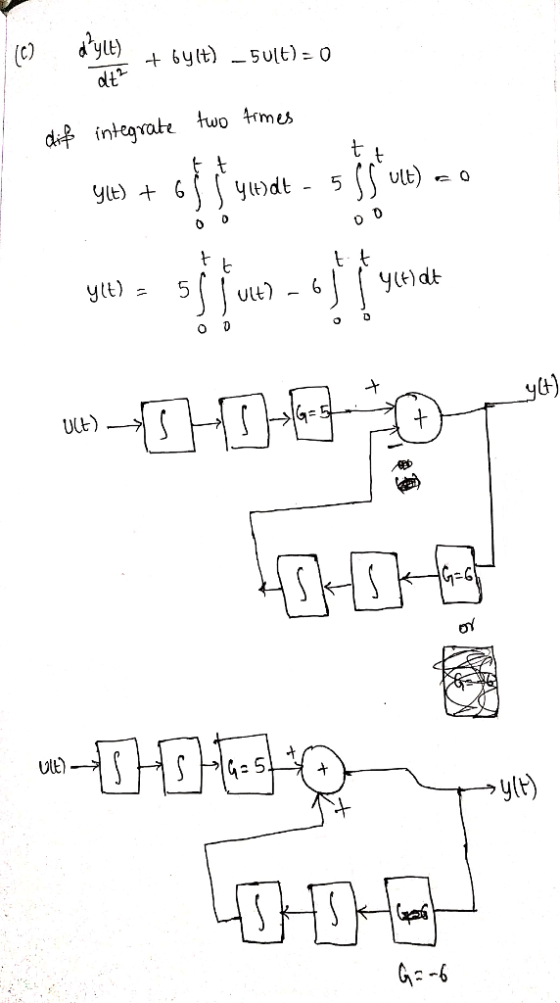 (C) d²y(t)/dt² + 6y(t) - 5u(t) = 0
integrate two times
y(t) + 6 ∫₀ᵗ ∫₀ᵗ y(t)dt - 5 ∫₀ᵗ ∫₀ᵗ u(t) = 0
y(t) = 5 ∫₀ᵗ ∫₀ᵗ u(t) - 6 ∫₀ᵗ ∫₀ᵗ y(t)dt
u(t) ∫ ∫ G=5 + + y(t)
-
∫ ∫ G=6
or
u(t) ∫ ∫ G=5 + + y(t)
+
∫ ∫
G=-6